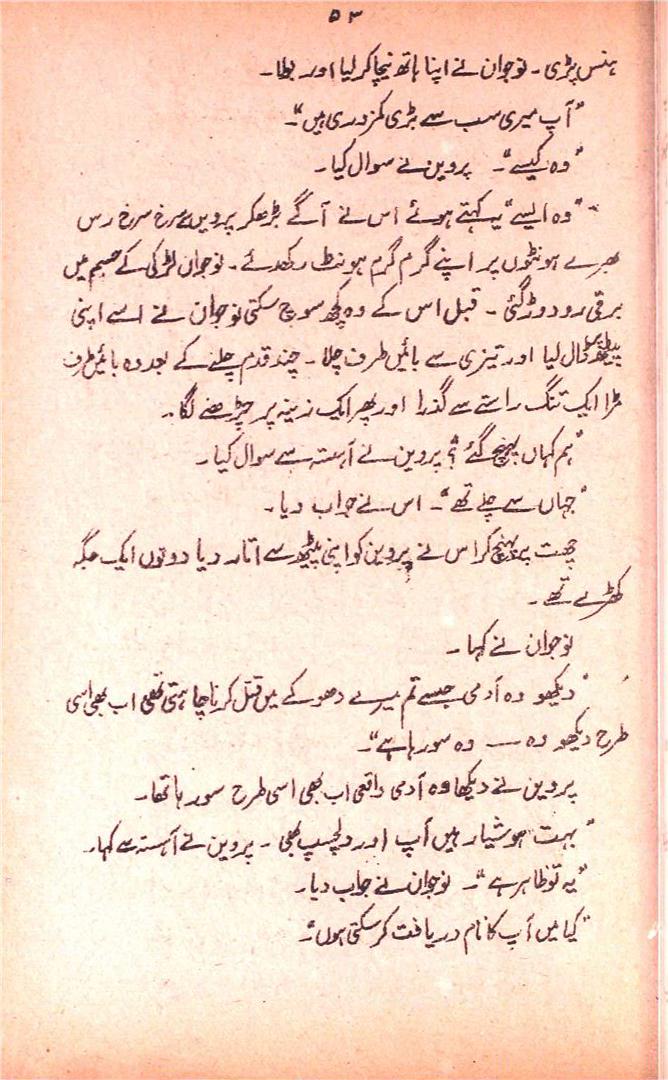 ۵۳
ہنس پڑی۔ نوجوان نے اپنا ہاتھ نیچا کر لیا اور بولا۔
"آپ میری سب سے بڑی کمزوری ہیں"۔
"وہ کیسے"۔ پروین نے سوال کیا۔
"وہ ایسے" یہ کہتے ہوئے اس نے آگے بڑھکر پروین کے سرخ سرخ رس
بھرے ہونٹوں پر اپنے گرم گرم ہونٹ رکھدئے۔ نوجوان لڑکی کے جسم میں
برقی رو دوڑ گئی۔ قبل اس کے وہ کچھ سوچ سکتی نوجوان نے اسے اپنی
پیٹھ پر ڈال لیا اور تیزی سے بائیں طرف چلا۔ چند قدم چلنے کے بعد وہ بائیں طرف
مڑا ایک تنگ راستے سے گذرا اور پھر ایک زینہ پر چڑھنے لگا۔
"ہم کہاں پہنچ گئے"؟ پروین نے آہستہ سے سوال کیا۔
"جہاں سے چلے تھے"۔ اس نے جواب دیا۔
چھت پر پہنچ کر اس نے پروین کو اپنی پیٹھ سے اتار دیا دونوں ایک جگہ
کھڑے تھے۔
نوجوان نے کہا۔
"دیکھو وہ آدمی جسے تم میرے دھوکے میں قتل کرنا چاہتی تھی اب بھی اسی
طرح دیکھو وہ — وہ سو رہا ہے"۔
پروین نے دیکھا وہ آدمی واقعی اب بھی اسی طرح سو رہا تھا۔
"بہت ہوشیار ہیں آپ اور دلچسپ بھی۔ پروین نے آہستہ سے کہا۔
"یہ تو ظاہر ہے"۔ نوجوان نے جواب دیا۔
"کیا میں آپ کا نام دریافت کر سکتی ہوں"۔